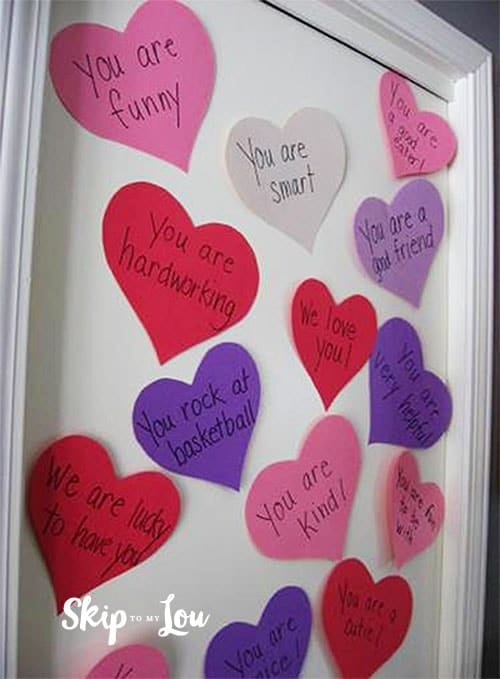 You are
funny
You are
a good
eater!
You are
smart
You are a
good friend
You are
hardworking
We love
you!
You are
very helpful!
You rock at
basketball
We are lucky
to have you
You are
Kind!
You are fun
to be
with
You are a
cutie!
You are
nice!
Skip TO MY Lou